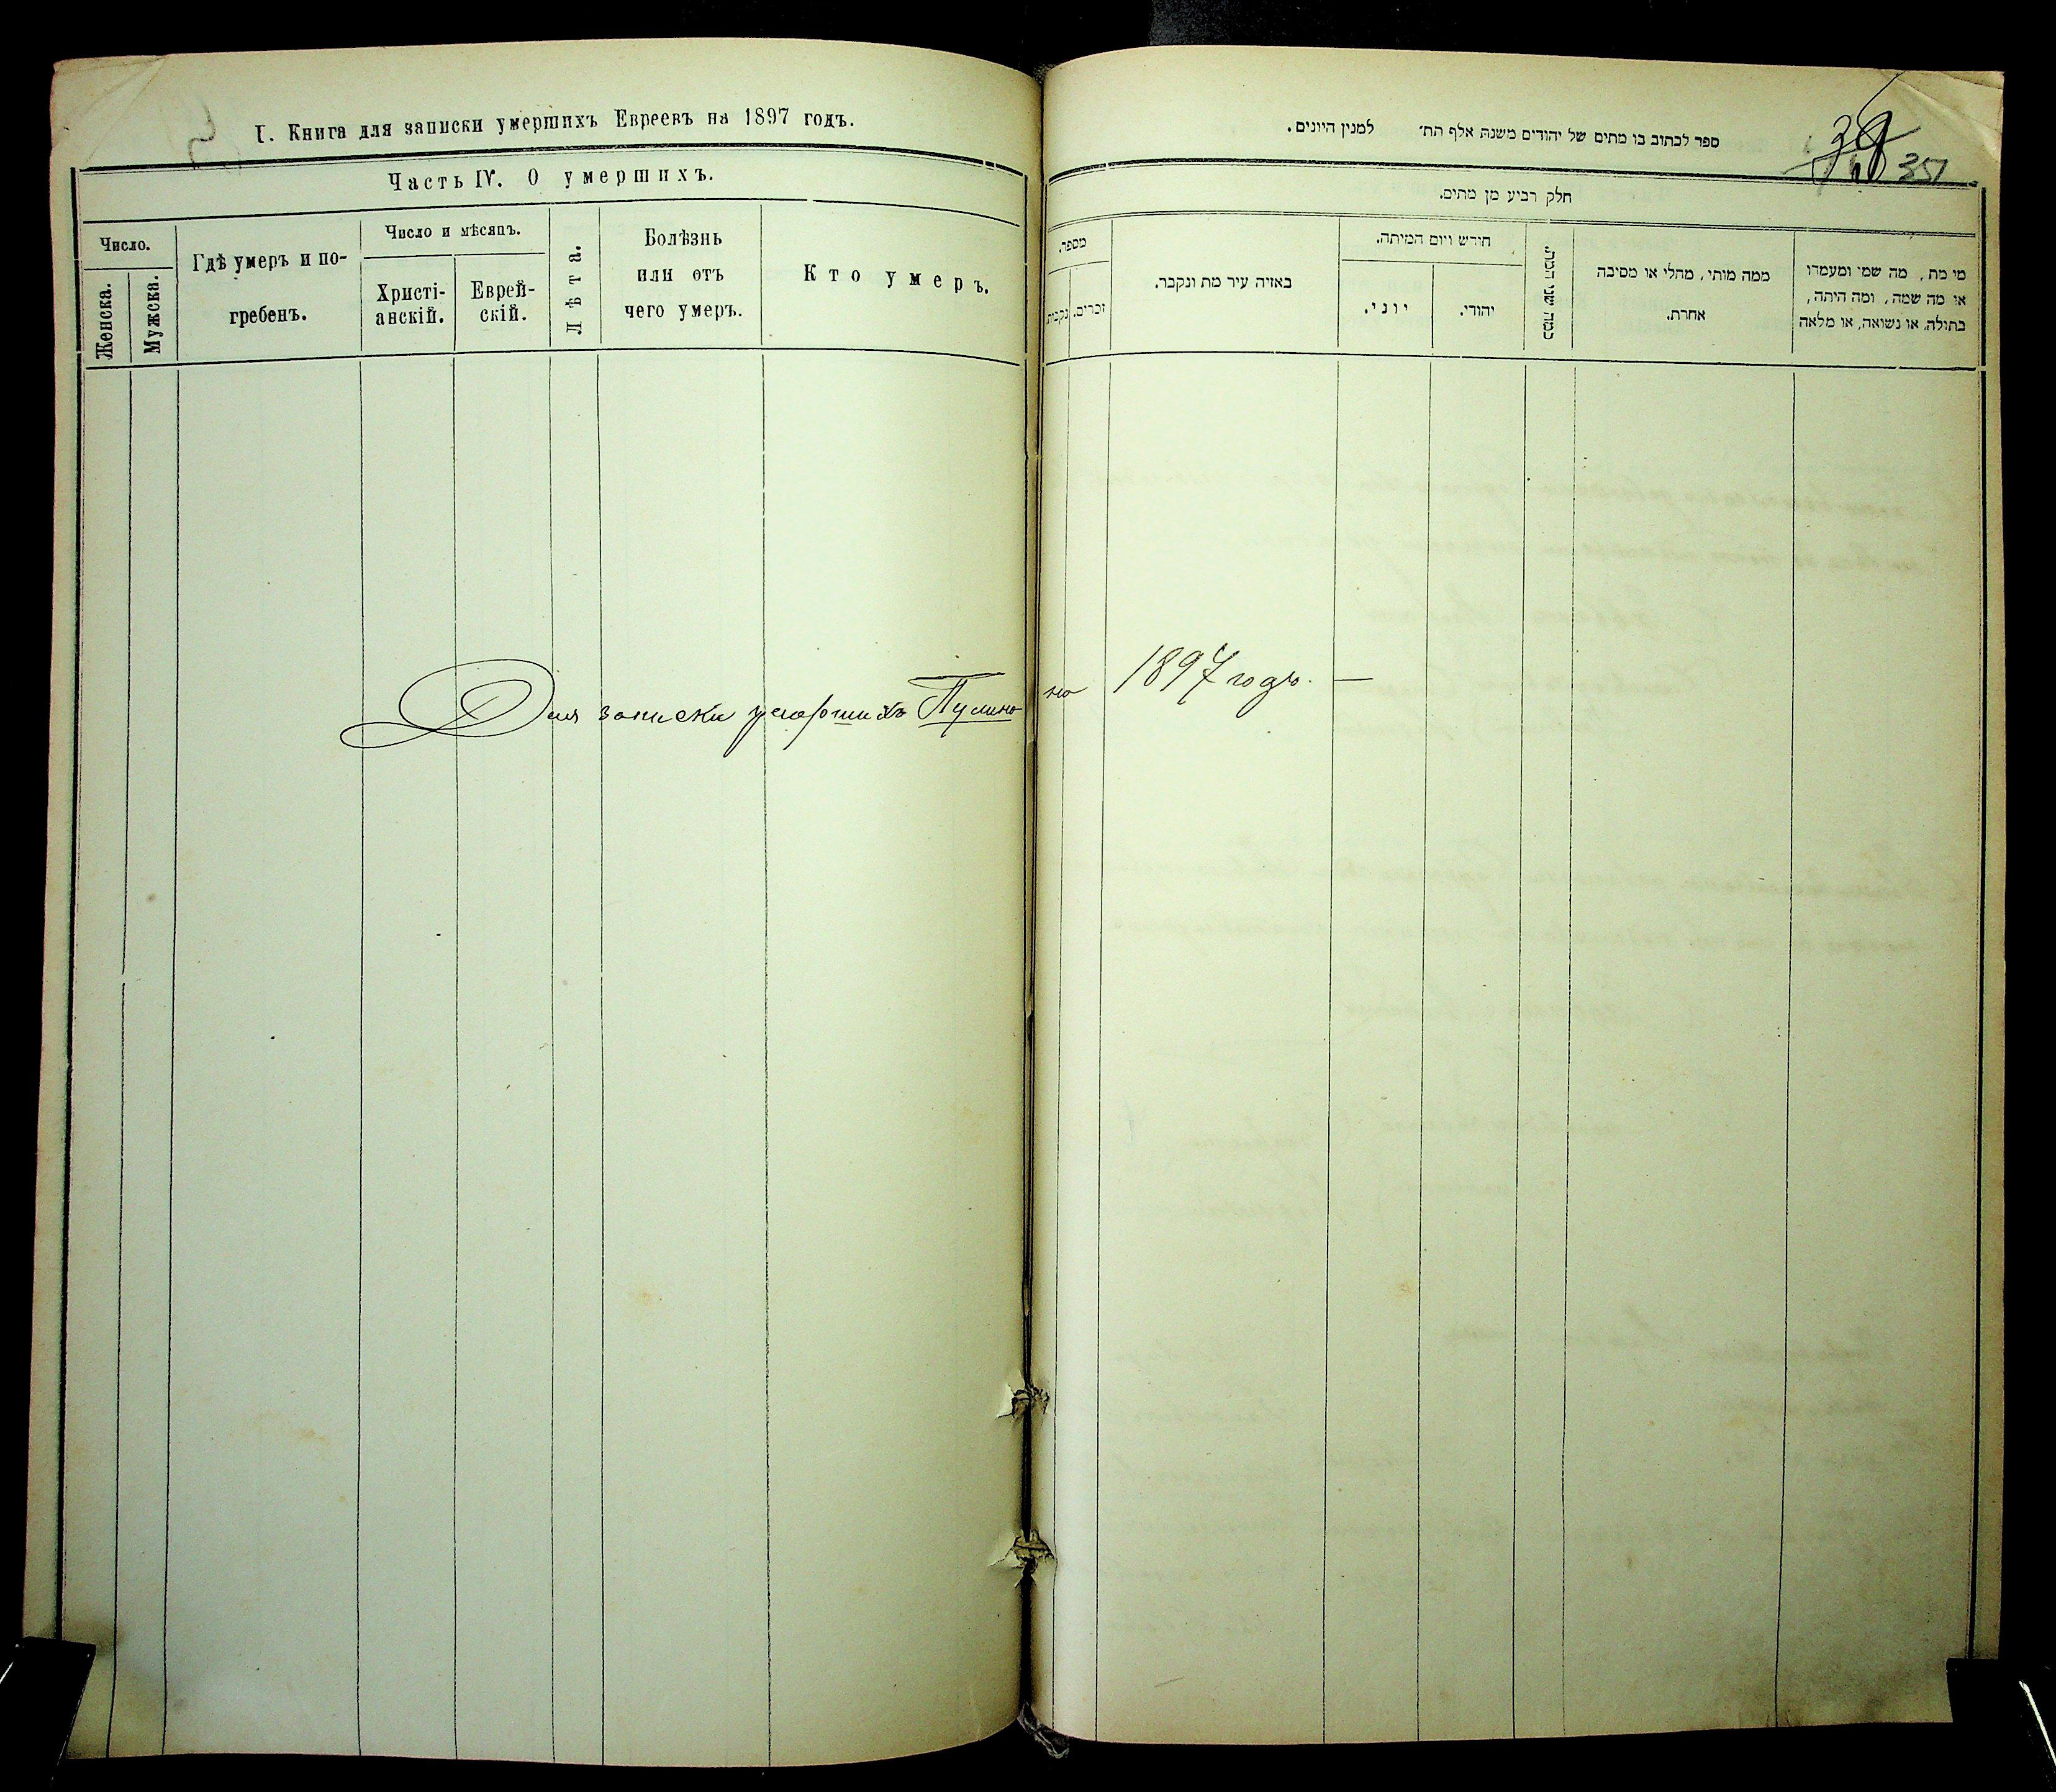 I. Книга для записки умершихъ Евреевъ на 1897 годъ.
Часть IV. О умершихъ.
Число.
Женска.
Мужска.
Гдѣ умеръ и по-
гребенъ.
Число и мѣсяцъ.
Христі-
анскій.
Еврей-
скій.
Лѣта.
Болѣзнь
или отъ
чего умеръ.
Кто умеръ.
ספר לכתוב בו מתים של יהודים משנת אלף תת׳ למנין היונים.
38
351
חלק רביע מן מתים.
מספר.
נקבות.
זכרים.
באיזה עיר מת ונקבר.
חודש ויום המיתה.
יוני.
יהודי.
כמה שני המת.
ממה מותו, מחלי או מסיבה
אחרת.
מי מת, מה שמו ומעמדו
או מה שמה, ומה היתה,
בתולה, או נשואה, או מלאה
Для записки умершихъ Пулино на 1897 годъ. —